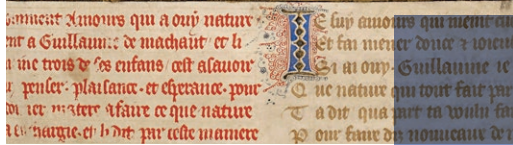 Amours qui a ouy nature
nt a Guillaume de machaut et li
ine trois de ses enfans cest asavoir
penser plaisance et esperance pour
matere a faire ce que nature
enchargie et li dit par ceste maniere
Ie suy amours qui maint cu
Et fai mener douce
Si ai ouy Guillaume ie
Que nature qui tout fait par
Ta dit qua part ta voulu fa
Pour faire diz nouueaux de